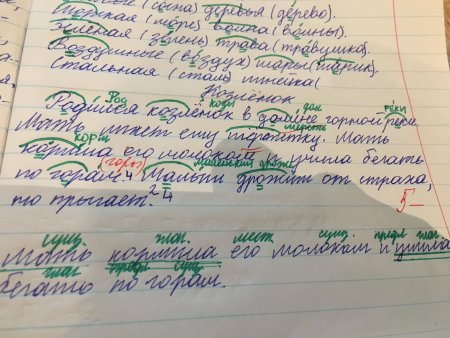 (сосна) деревья (дерево).
Морская (море) волна (волны).
Зелёная (зелень) трава (травушка).
Воздушные (воздух) шары (шарик).
Стальная (сталь) линейка(
Козлёнок
Род козы дол реки
Родился козлёнок в долине горной реки
тереть
Мать лижет ему шёрстку. Мать
корм
кормила его молоком и учила бегать
(горы) маленький дрожь
по горам. 4 Малыш дрожит от страха,
но прыгает. 2 4
5-
сущ. глаг. мест. сущ. предл глаг.
Мать кормила его молоком и учила
глаг. предл сущ.
бегать по горам.